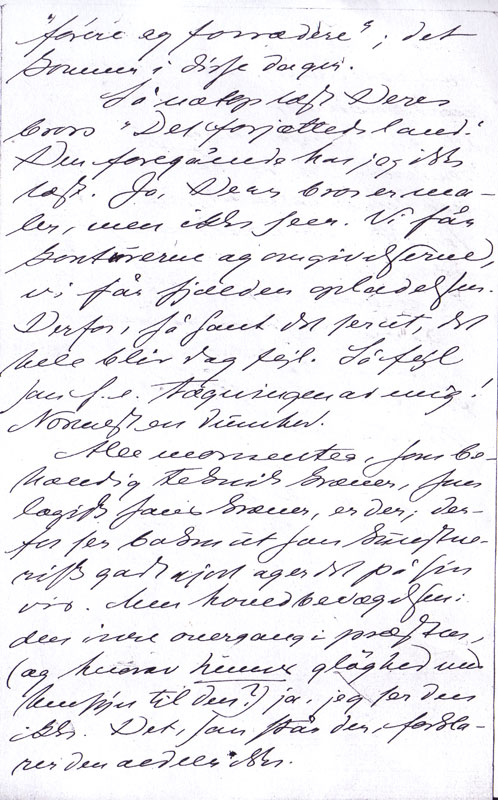 "førere og forrædere"; det
kommer i disse dager.
Så netop læst Deres
brors "Det forjættede land".
Den foregående har jeg ikke
læst. Jo, Deres bror er ma-
ler, men ikke seer. Vi får
konturerne og omgivelserne,
vi får sjælden opladelsen.
Derfor, så sant det ser ut, det
hele blir dog fejl. Så fejl
som f. e. tegningen av mig!
Nærmest en dumhed.
Alle momenter, som be-
hændig teknik kræver, som
logisk sans kræver, er der; der-
for ser boken ut som kunstne-
risk godt gjort og er det på sin
vis. Men hovedbevægelsen:
den indre overgang i præsten,
(og hvorav hennes gløghed med
hensyn til den?) ja, jeg ser den
ikke. Det, som står der, forkla-
rer den aldeles ikke.